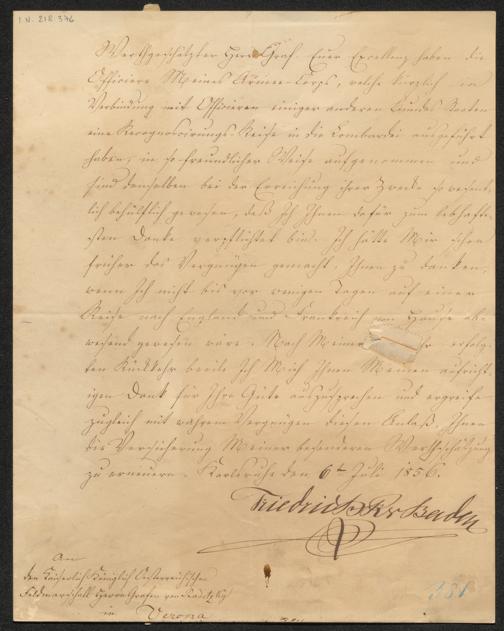 I.N. 218.376
Werthgeschätzter Herr Graf. Euer Excellenz haben die
Officiere Meines Armee-Corps, welche kürzlich in
Verbindung mit Officieren einiger anderen Bundes Staaten
eine Recognoscirungs-Reise in die Lombardei ausgeführt
haben, in so freundlicher Weise aufgenommen und
sind denselben bei der Erreichung ihrer Zwecke so wesent-
lich behülflich gewesen, daß Ich Ihnen dafür zum lebhafte-
sten Danke verpflichtet bin. Ich hätte Mir schon
früher das Vergnügen gemacht, Ihnen zu danken,
wenn Ich nicht bis vor wenigen Tagen auf einer
Reise nach England und Frankreich von Hause ab-
wesend gewesen wäre. Nach Meiner erfolg-
ten Rückkehr beeile Ich Mich Ihnen Meinen aufricht-
igen Dank für Ihre Güte auszusprechen und ergreife
zugleich mit wahrem Vergnügen diesen Anlaß, Ihnen
die Versicherung Meiner besonderen Werthschätzung
zu erneuern. Karlsruhe den 6t Juli 1856.
Friedrich Pr v Baden
An
den Kaiserlich Königlich Oesterreichischen
Feldmarschall Herrn Grafen von Radetzky
in Verona
381